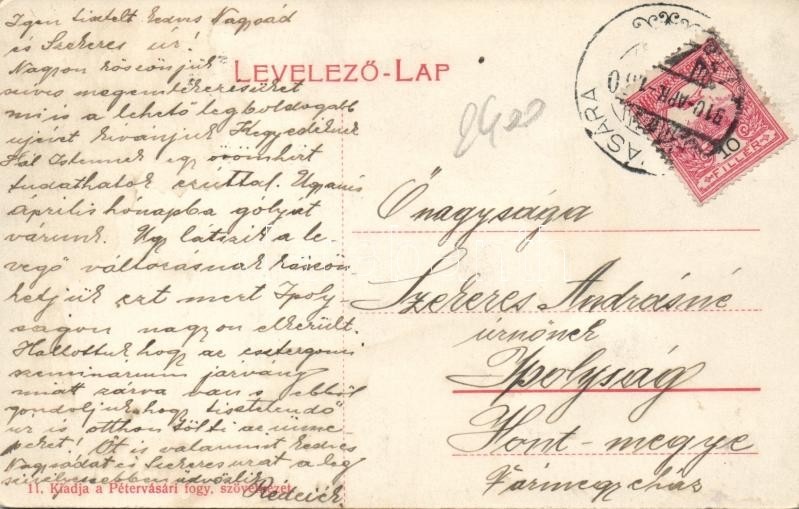 Igen tisztelt kedves Nagysád
és Szekeres úr!
Nagyon köszönjük
szíves megemlékezésüket
mi is a lehető legboldogabb
ujévet kivánjuk Kegyedéknek
Hál Istennek egy örömhírt
tudathatok ezúttal. Ugyanis
április hónapba gólyát
várunk. Ugy látszik a le-
vegő változásnak köszön-
hetjük ezt mert Ipoly-
ságon nagyon elkerült.
Hallottuk hogy az esztergomi
szeminárium járvány
miatt zárva van s ebből
gondoljuk hogy tisztelendő
úr is otthon tölti az ünne-
peket! Őt is valamint kedves
Nagysádat és Szekeres urat a leg
szívélyesebben üdvözlik
LEVELEZŐ-LAP
2400
ÁSÁRA
910 APR
FILLÉR
Őnagysága
Szekeres Andrásné
úrnőnek
Ipolyság
Hont-megye
Vármegyeház
11. Kiadja a Pétervásári fogy. szövetkezet